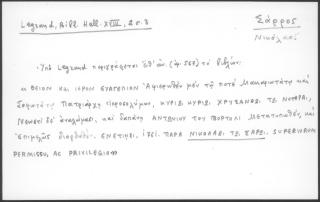 Legrand, Bibl. Hell. XVIII, 2 σ. 8
Σάρρος
Νικόλαος
Ὑπὸ Legrand περιγράφεται ἐπ' ἀρ. (ἀρ. 567) τὸ βιβλίον:
ΘΕΙΟΝ ΚΑΙ ΙΕΡΟΝ ΕΥΑΓΓΕΛΙΟΝ Ἀφιερωθὲν μὲν τῷ ποτὲ Μακαριωτάτῳ καὶ
Σοφωτάτῳ Πατριάρχῃ Ἱεροσολύμων, ΚΥΡΙΩ ΚΥΡΙΩ ΧΡΥΣΑΝΘΩ, ΤΩ ΝΟΤΑΡΑ,
δ' ἀναλώμασι, καὶ δαπάνῃ ΑΝΤΩΝΙΟΥ ΤΟΥ ΒΟΡΤΟΛΙ Μετατυπωθέν, καὶ
Ἐπιμελῶς διορθωθέν. ΕΝΕΤΙΗΣΙ, ΠΑΡΑ ΝΙΚΟΛΑΩ ΤΩ ΣΑΡΩ. SUPERIORUM
PERMISSU, AC PRIVILEGIO